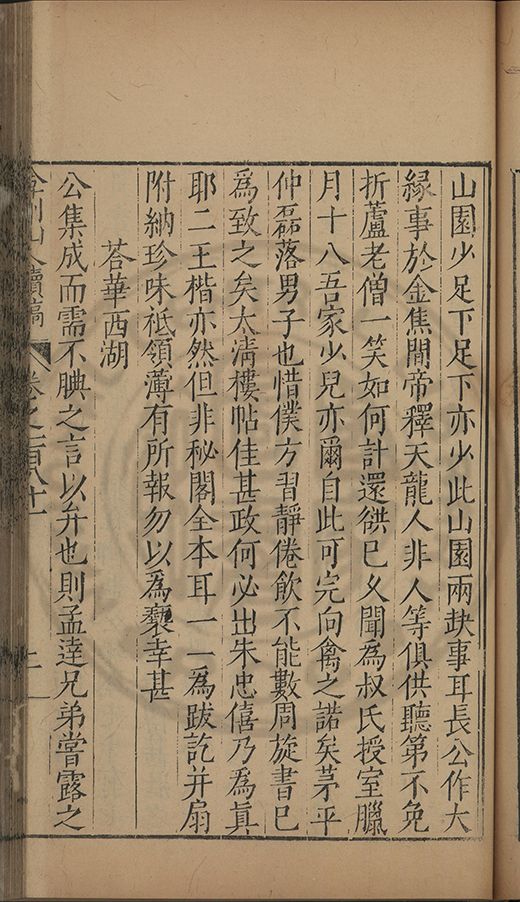 山園少足下足下亦少此山園兩缺事耳長公作大
緣事於金焦間帝釋天龍人非人等俱供聽第不免
折蘆老僧一笑如何計還錤已乆聞為叔氏授室臘
月十八吾家少兒亦爾自此可完向禽之諾矣茅平
仲磊落男子也惜僕方習靜倦飲不能數周旋書已
為致之矣太清樓帖佳甚政何必出朱忠僖乃為真
耶二王楷亦然但非秘閣全本耳一一為跋訖并扇
附納珍味祇領薄有所報勿以為褻幸甚
荅華西湖
公集成而需不腆之言以弁也則孟達兄弟嘗露之
弇州山人續稿 卷之一百八十一